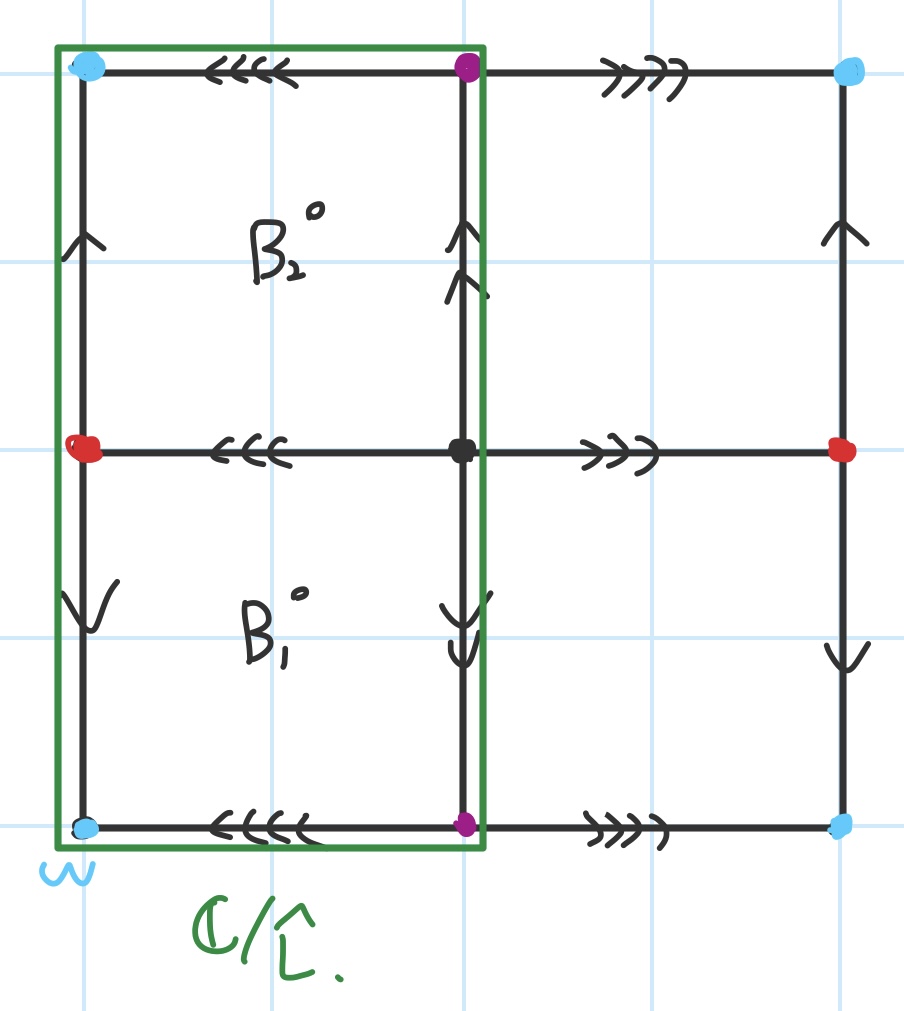 B₂°
B₁°
ω
ℂ/L̂.